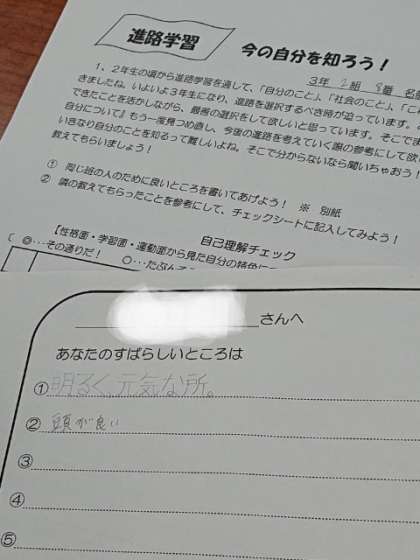 進路学習
今の自分を知ろう！
3年 2組 8番 名前
１、２年生の頃から進路学習を通して、「自分のこと」、「社会のこと」、「こ
きましたね。いよいよ３年生になり、進路を選択するべき時が迫っています。
できたことを活かしながら、最善の選択をして欲しいと思っています。そこでま
自分について』もう一度見つめ直し、今後の進路を考えていく際の参考にして欲
いきなり自分のことを知るって難しいよね。そこで分からないなら聞いちゃおう！
教えてもらいましょう！
① 同じ班の人のために良いところを書いてあげよう！ ※ 別紙
② 隣の教えてもらったことを参考にして、チェックシートに記入してみよう！
自己理解チェック
【性格面・学習面・運動面から見た自分の特徴に
（ ◎…その通りだ！ ○…たぶん
さんへ
あなたのすばらしいところは
① 明るく、元気な所。
② 頭が良い
③
④
⑤